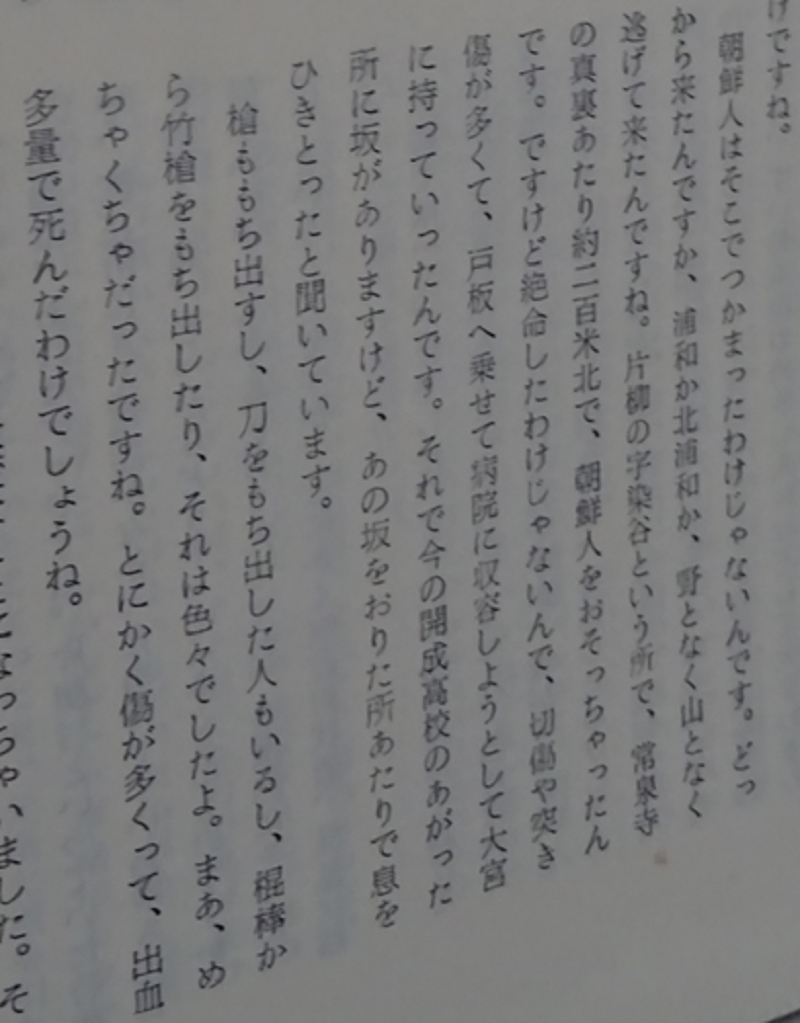 けですね。
朝鮮人はそこでつかまったわけじゃないんです。どっ
から来たんですか、浦和か北浦和か、野となく山となく
逃げて来たんですね。片柳の字染谷という所で、常泉寺
の真裏あたり約二百米北で、朝鮮人をおそっちゃったん
です。ですけど絶命したわけじゃないんで、切傷や突き
傷が多くて、戸板へ乗せて病院に収容しようとして大宮
に持っていったんです。それで今の開成高校のあがった
所に坂がありますけど、あの坂をおりた所あたりで息を
ひきとったと聞いています。
槍ももち出すし、刀をもち出した人もいるし、棍棒か
ら竹槍をもち出したり、それは色々でしたよ。まあ、め
ちゃくちゃだったですね。とにかく傷が多くって、出血
多量で死んだわけでしょうね。
になっちゃいました。そ